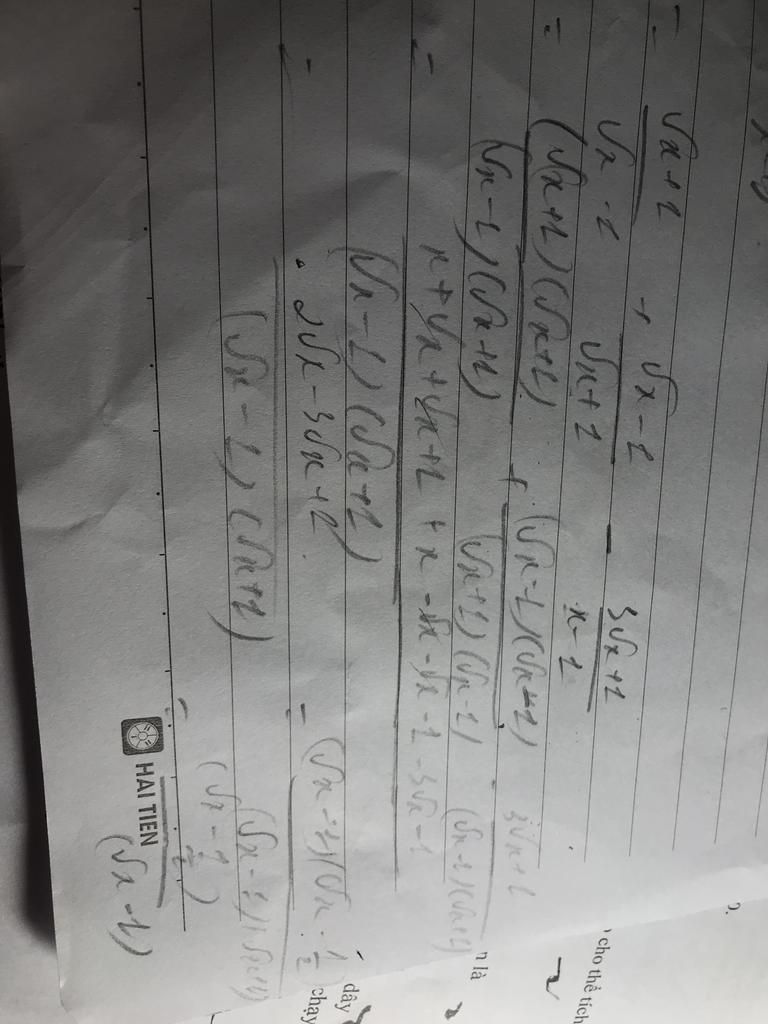 = √x+1 / √x-1 + √x-1 / √x+1 - 3√x+1 / x-1
= (√x+1)(√x+1) / (√x-1)(√x+1) + (√x-1)(√x+1) / (√x+1)(√x-1) 3√x+1 / (√x-1)(√x+1)
= x+√x+√x+1 + x-√x-√x-1-3√x-1 / (√x-1)(√x+1)
= 2√x-3√x+1 / (√x-1)(√x+1) = (√x-1)(√x-1/2) / (√x-1)(√x+1)
= (√x-1/2) / (√x-1)
HAI TIEN
cho thể tích
n là
dây
chạy